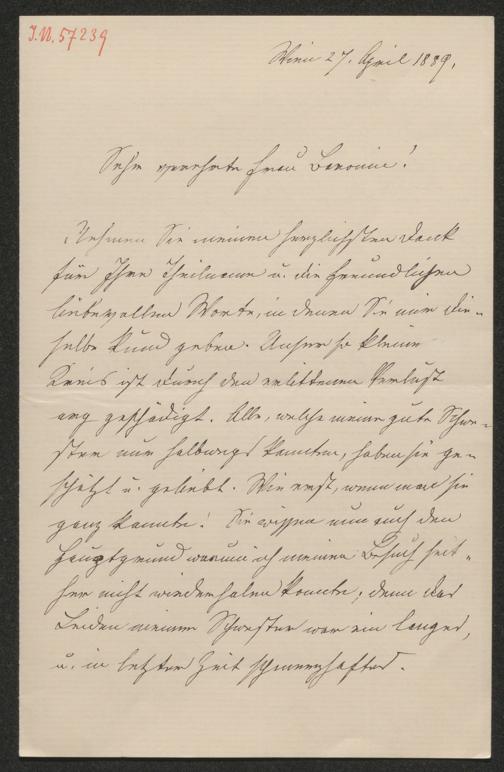 I.N. 57239
Wien 27. April 1889.
Sehr verehrte Frau Baronin!
Nehmen Sie meinen herzlichsten Dank
für Ihre Theilname u. die freundlichen
liebevollen Worte, in denen Sie mir die-
selbe kund geben. Unser so kleiner
Kreis ist durch den erlittenen Verlust
arg geschädigt. Alle, welche meine gute Schwe-
ster nur halbwegs kannten, haben sie ge-
schätzt u. geliebt. Wie erst, wenn man sie
ganz kannte! Sie wissen nun auch den
Hauptgrund warum ich meinen Besuch seit-
her nicht wiederholen konnte; denn das
Leiden meiner Schwester war ein langes,
u. in letzter Zeit schmerzhaftes.